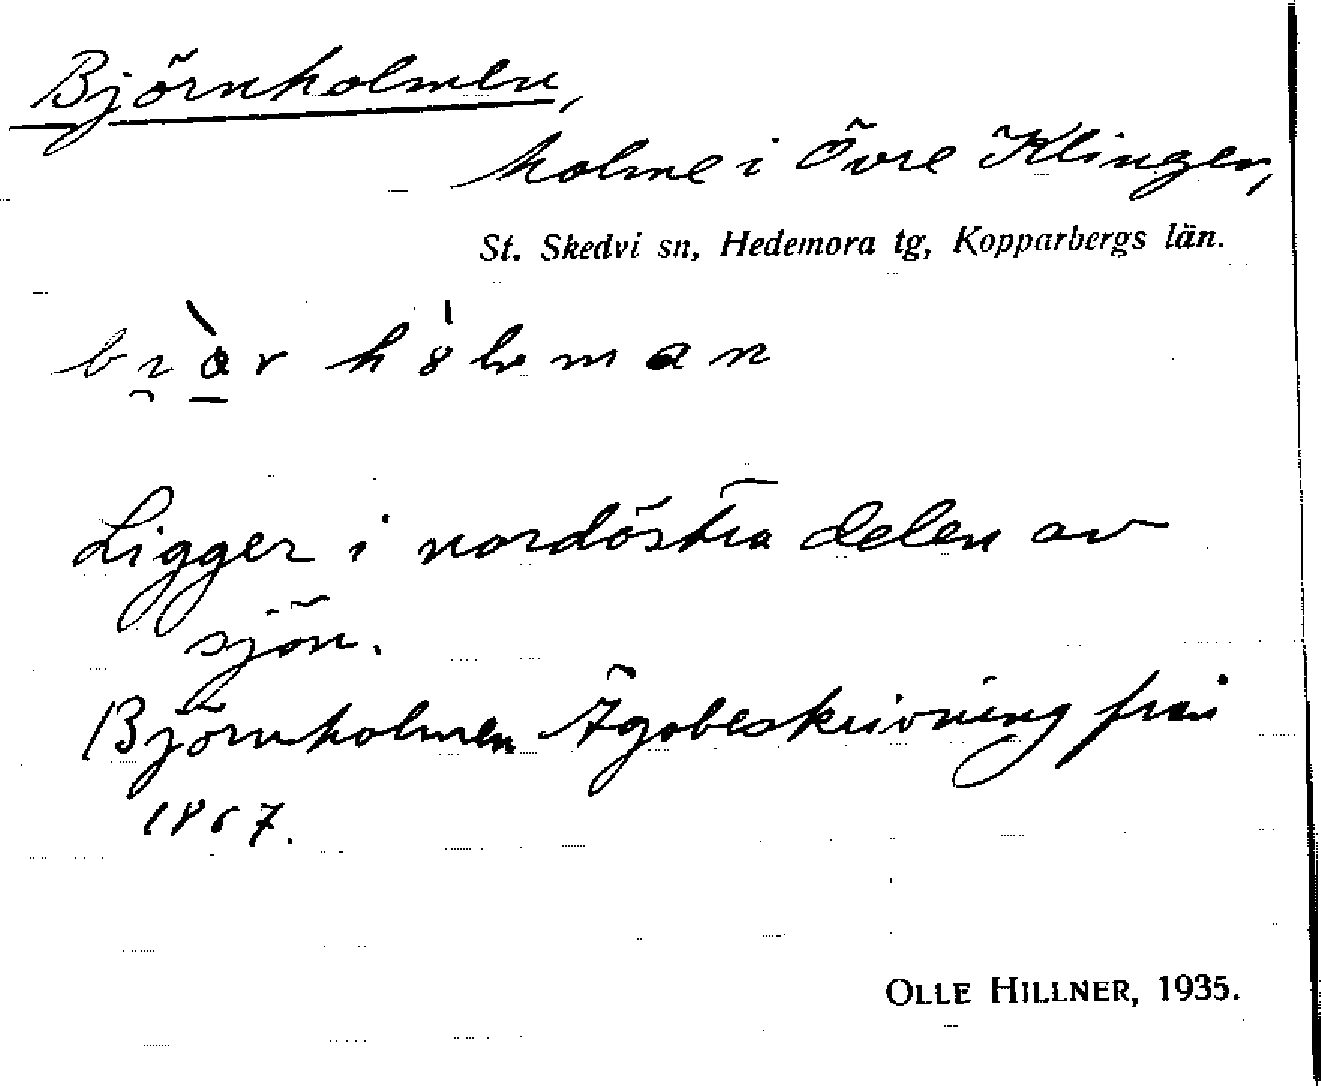 Björnholmen,
holme i Övre Klingen,
St. Skedvi sn, Hedemora tg, Kopparbergs län.
Ligger i nordöstra delen av
sjön.
Björnholmen Ägobeskrivning från
1867.
OLLE HILLNER, 1935.